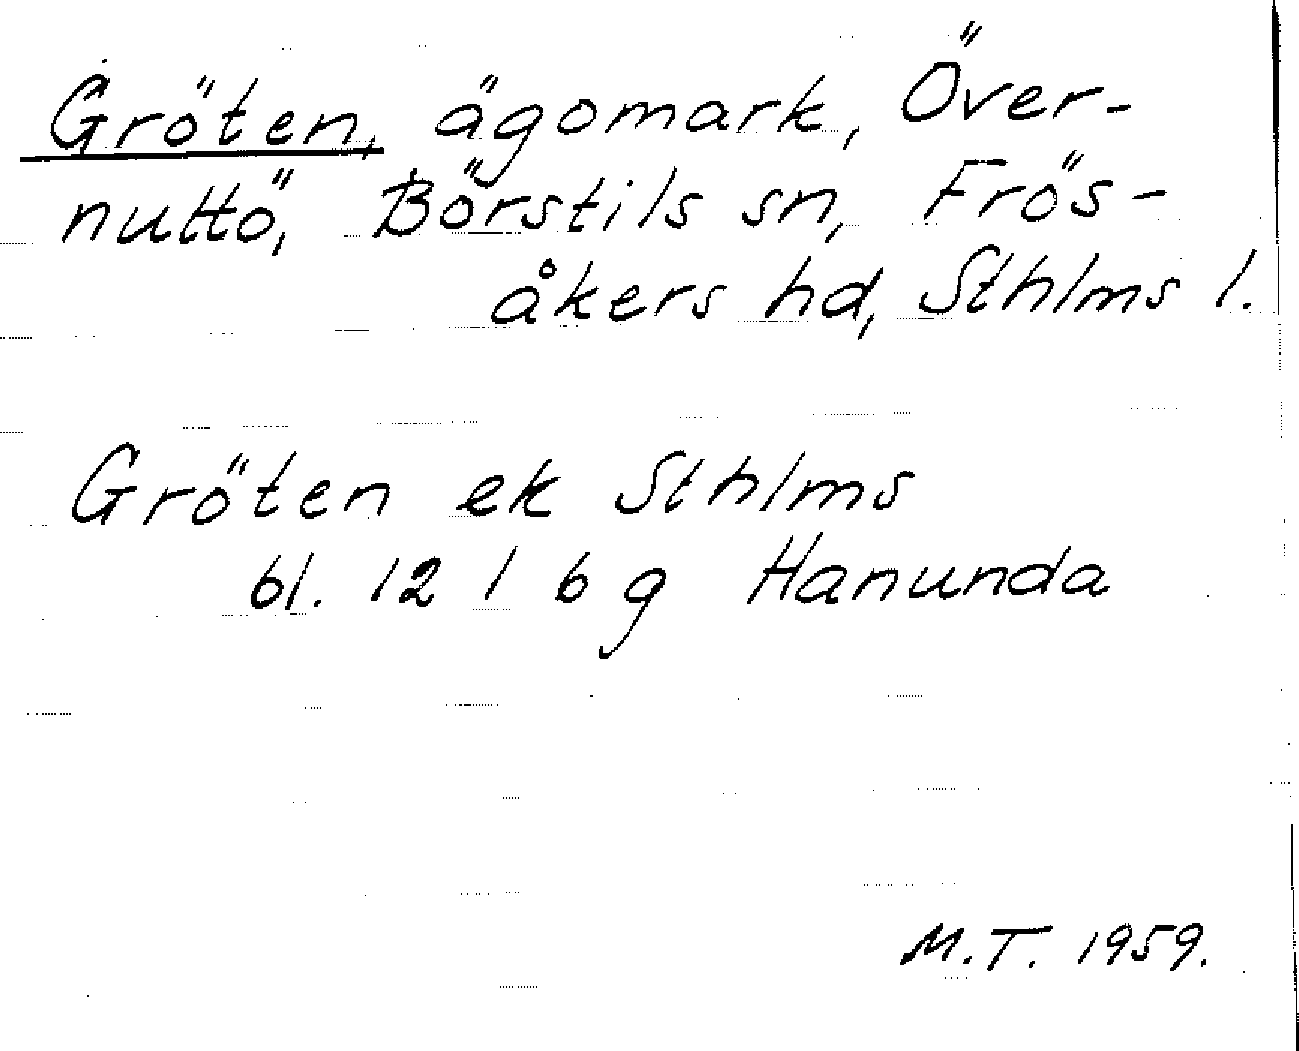 Gröten, ägomark, Över-
nuttö, Börstils sn, Frös-
åkers hd, Sthlms l.
Gröten ek Sthlms
bl. 12 l b g Hanunda
M.T. 1959.